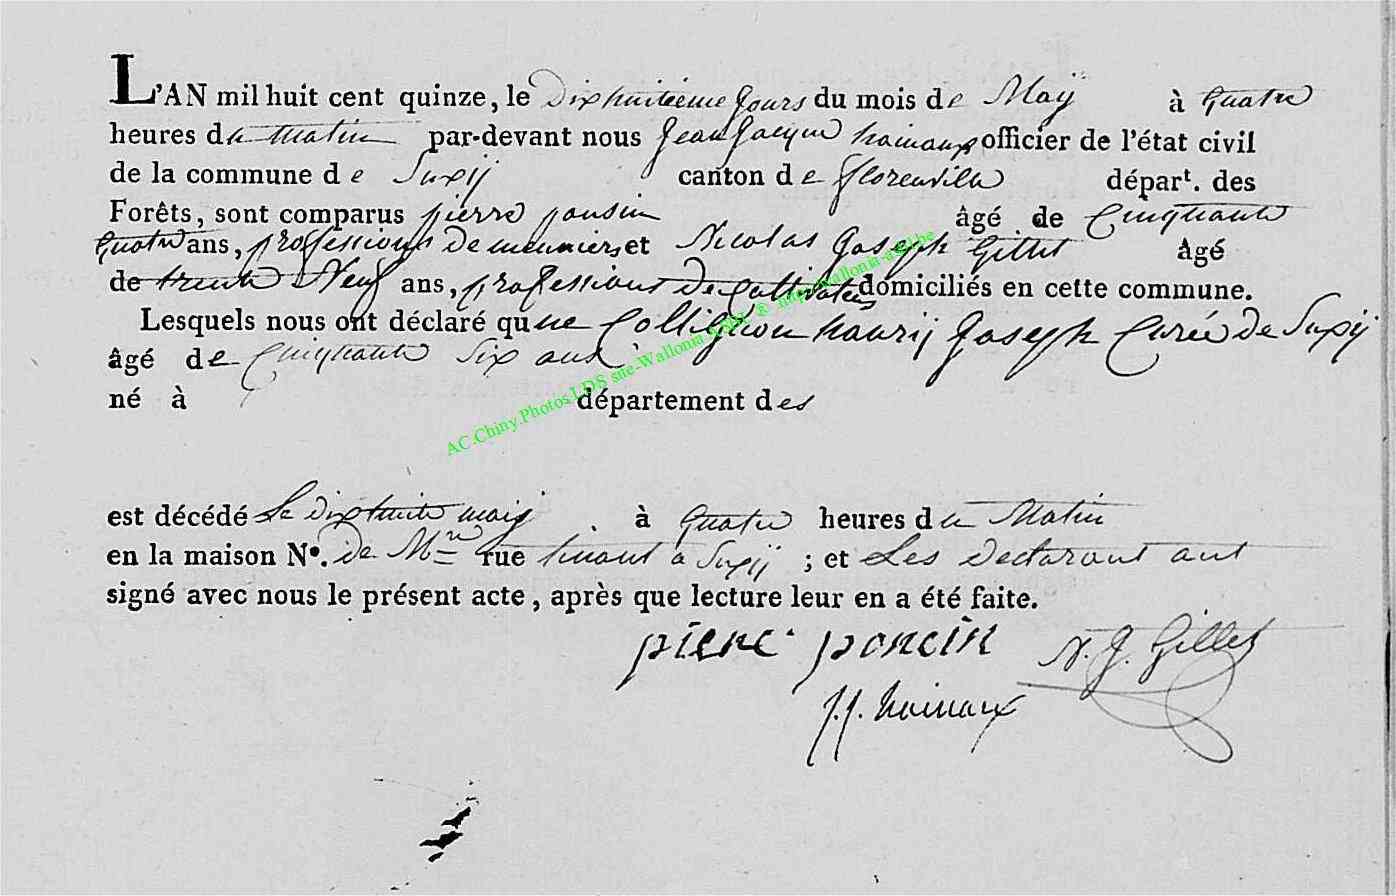 L'AN mil huit cent quinze, le Dixhuitieme jours du mois de Maÿ à quatre
heures du matin par-devant nous Jean Jacque hainaux officier de l'état civil
de la commune de Suxÿ canton de florenville départ. des
Forêts, sont comparus pierre ponsin âgé de Cinquante
quatre ans, proffessions De meuniers et Nicolas Joseph Gillet âgé
de trente Neuf ans, proffessions De Cultivateurs domiciliés en cette commune.
Lesquels nous ont déclaré qu ne Collignon hanrij Joseph Curée de Suxÿ
âgé de Cinquante Six ans
né à département des
est décédé Le dixhuite maij à quatre heures du Matin
en la maison N°. de Mre rue a Suxÿ ; et Les declarant ont
signé avec nous le présent acte, après que lecture leur en a été faite.
pierre poncin N. J. Gillet
J. J. hainaux
AC.Chiny.Photos LDS site-Wallonia ASBL ® http:wallonia-asbl.be